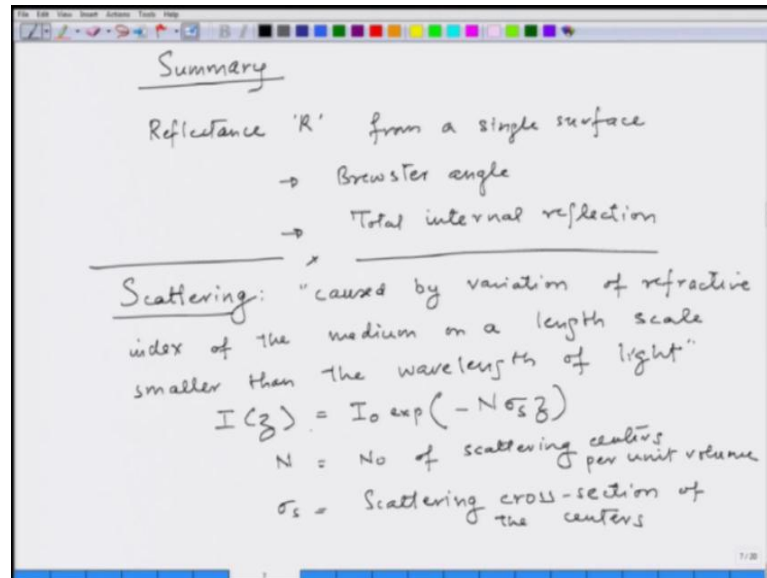 File Edit View Insert Actions Tools Help
Summary
Reflectance 'R' from a single surface
→ Brewster angle
→ Total internal reflection
x
Scattering: "caused by variation of refractive
index of the medium on a length scale
smaller than the wavelength of light"
I(z) = I₀ exp(-Nσₛz)
N = No of scattering centers
per unit volume
σₛ = Scattering cross-section of
the centers
7/20